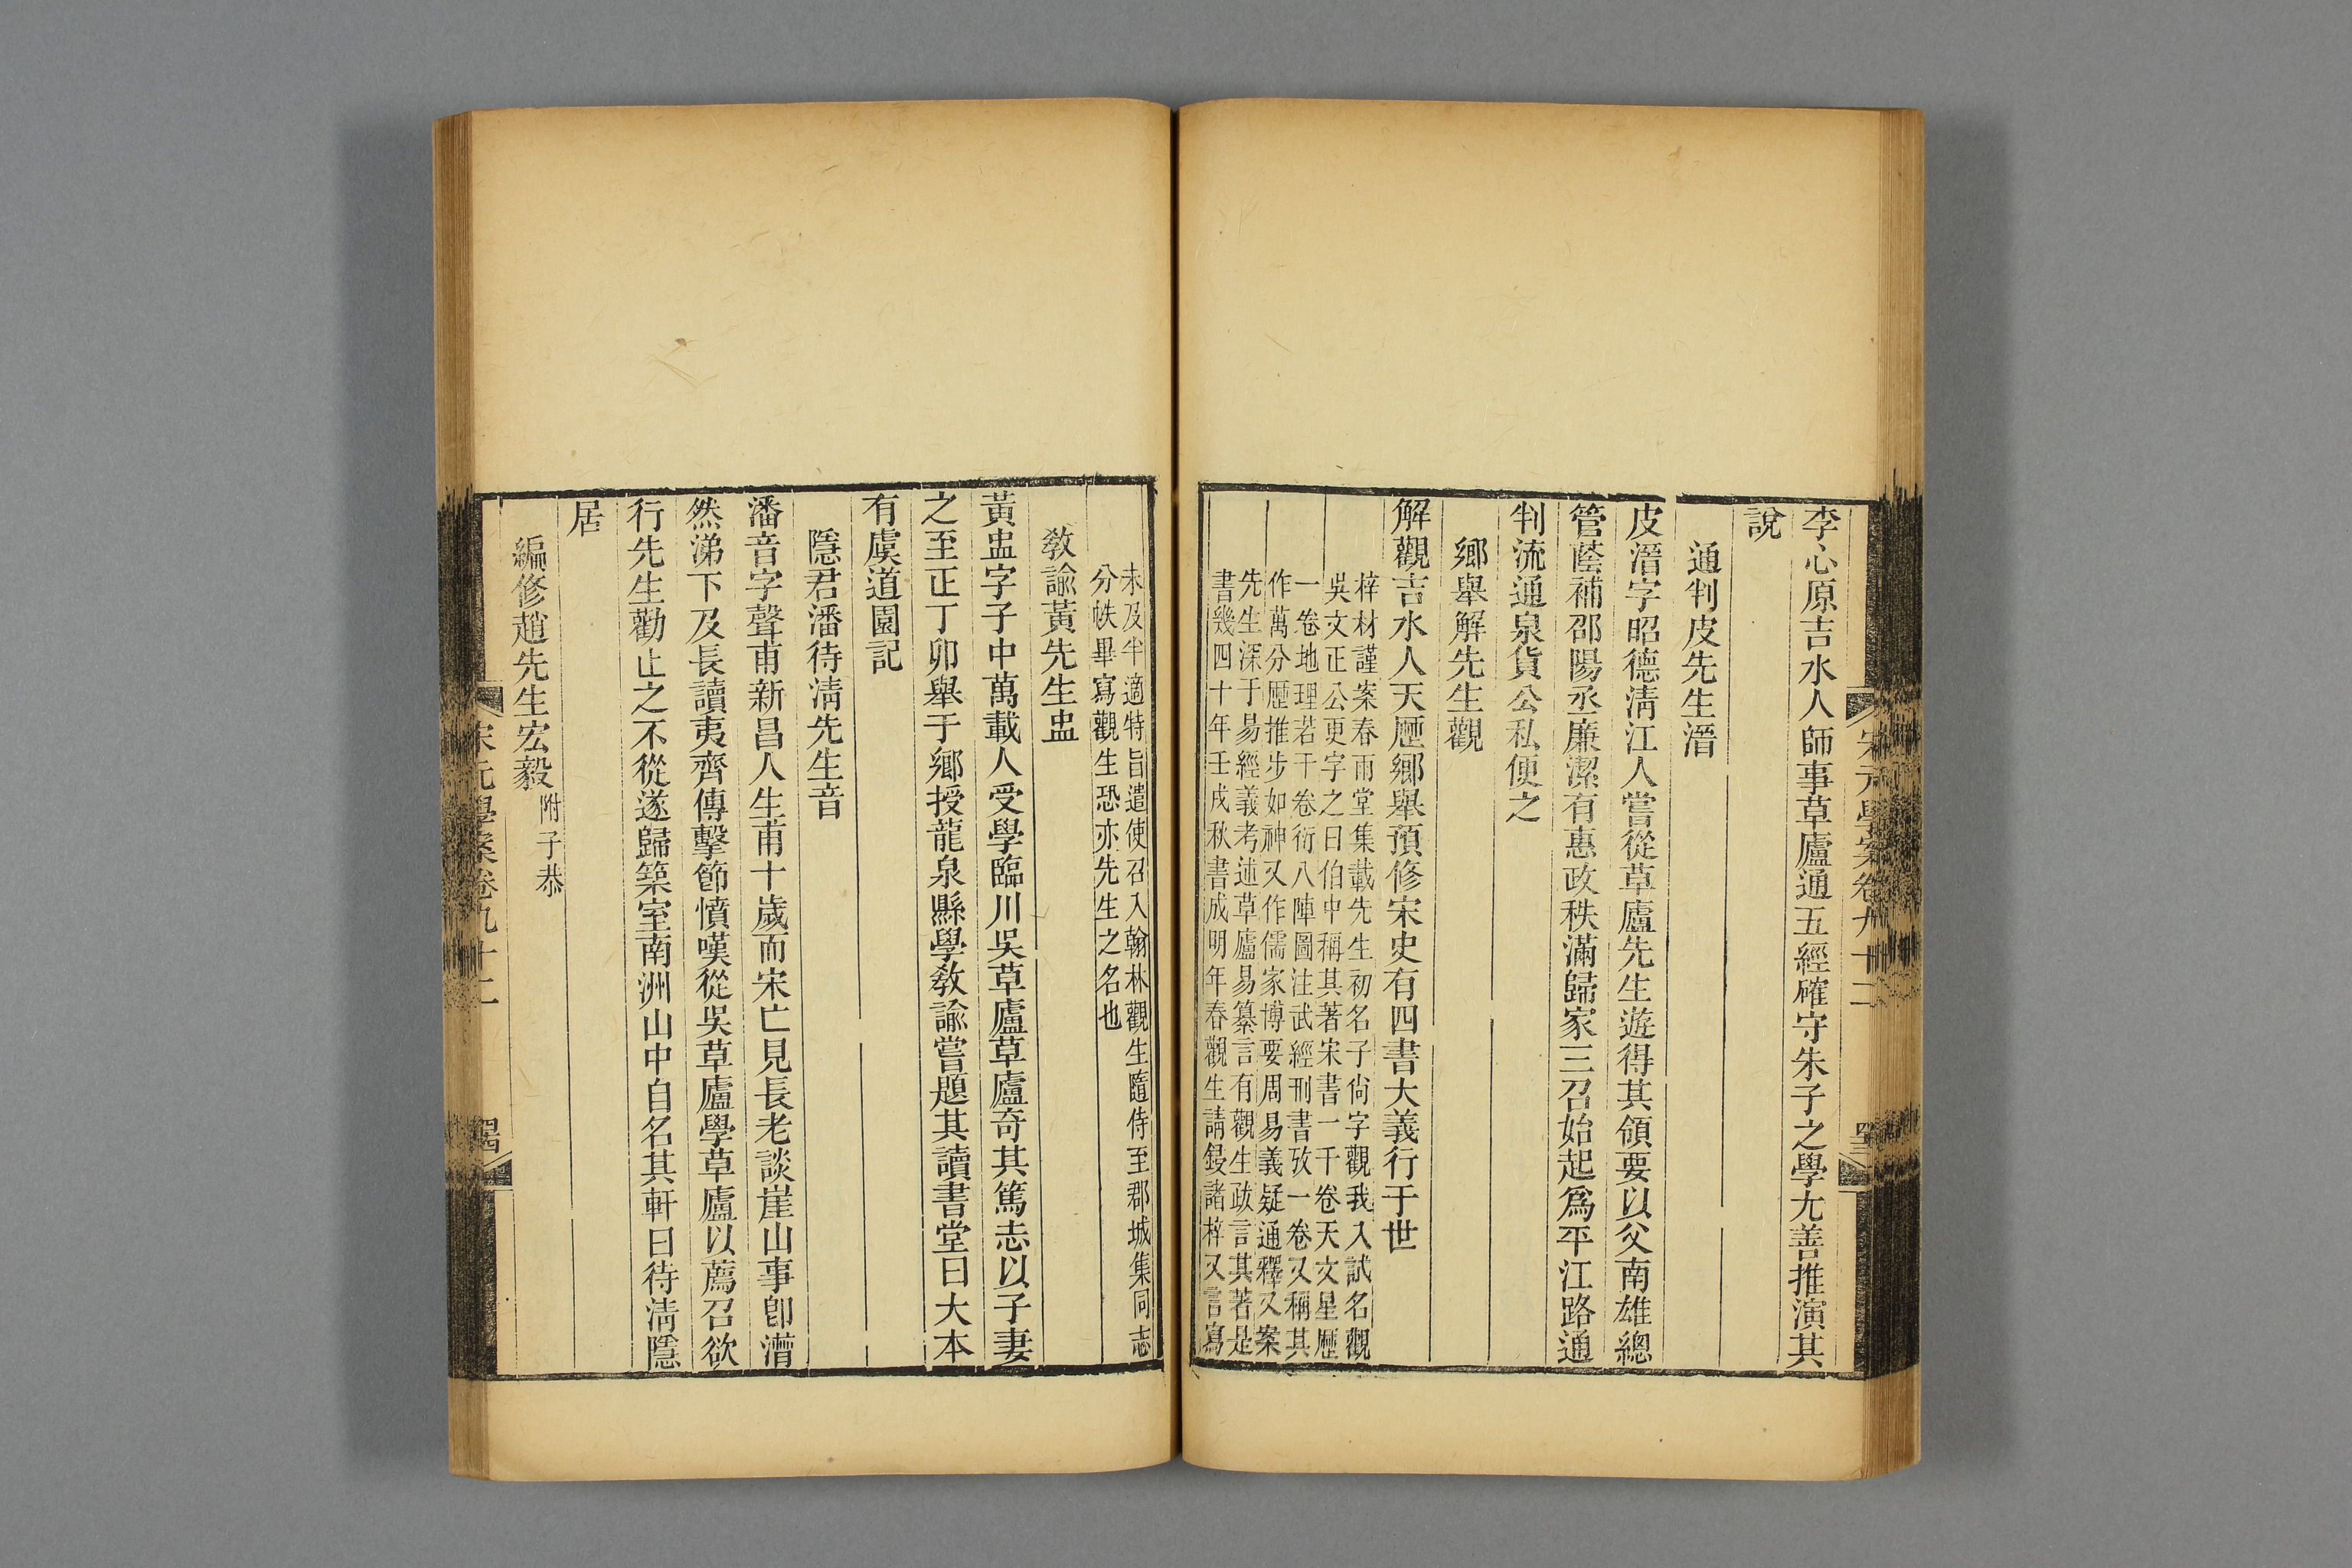 李心原吉水人師事草廬通五經確守朱子之學尤善推演其
說
通判皮先生溍
皮溍字昭德淸江人嘗從草廬先生遊得其領要以父南雄總
管蔭補邵陽丞廉潔有惠政秩滿歸家三召始起爲平江路通
判流通泉貨公私便之
鄉舉解先生觀
解觀吉水人天厯鄉舉預修宋史有四書大義行于世
梓材謹案春雨堂集載先生初名子尙字觀我入試名觀
吳文正公更字之曰伯中稱其著宋書一千卷天文星厯
一卷地理若干卷衍八陣圖注武經刑書攷一卷又稱其
作萬分厯推步如神又作儒家博要周易義疑通釋又案
先生深于易經義考述草廬易纂言有觀生跋言其著是
書幾四十年壬戌秋書成明年春觀生請鋟諸梓又言寫
未及半適特旨遣使召入翰林觀生隨侍至郡城集同志
分帙畢寫觀生恐亦先生之名也
敎諭黃先生盅
黃盅字子中萬載人受學臨川吳草廬草廬奇其篤志以子妻
之至正丁卯舉于鄉授龍泉縣學敎諭嘗題其讀書堂曰大本
有虞道園記
隱君潘待淸先生音
潘音字聲甫新昌人生甫十歲而宋亡見長老談崖山事卽潸
然涕下及長讀夷齊傳擊節憤嘆從吳草廬學草廬以薦召欲
行先生勸止之不從遂歸築室南洲山中自名其軒曰待淸隱
居
編修趙先生宏毅附子恭
宋元學案卷九十二
宋元學案卷九十二